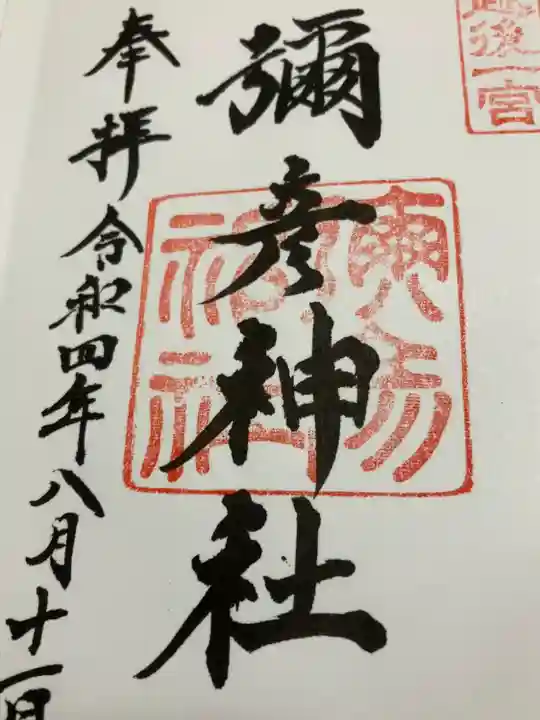 越後一宮
彌彦神社
奉拝令和四年八月十一日